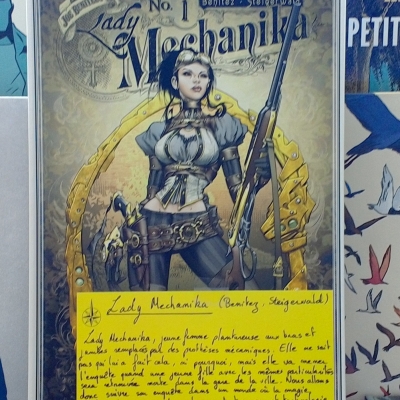 No. 1
Benitez · Steigerwald
Lady
Mechanika
PETIT
Lady Mechanika (Benitez, Steigerwald)
Lady Mechanika, jeune femme plantureuse aux bras et
jambes remplacés par des prothèses mécaniques. Elle ne sait
pas qui lui a fait cela, ni pourquoi, mais elle va mener
l'enquête quand une jeune fille avec les mêmes particularités
sera retrouvée morte dans la gare de la ville. Nous allons
donc suivre son enquête dans un monde où la magie,